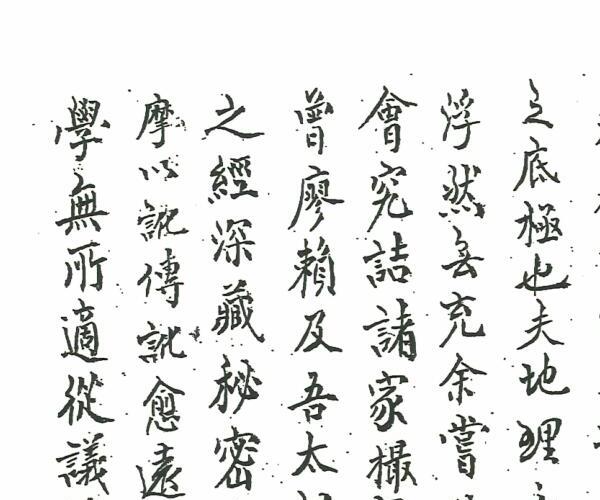 之底極也夫地理
浮然無充余嘗
會究詰諸家撮
曾廖賴及吾太
之經深藏秘密
摩以訛傳訛愈遠
學無所適從議